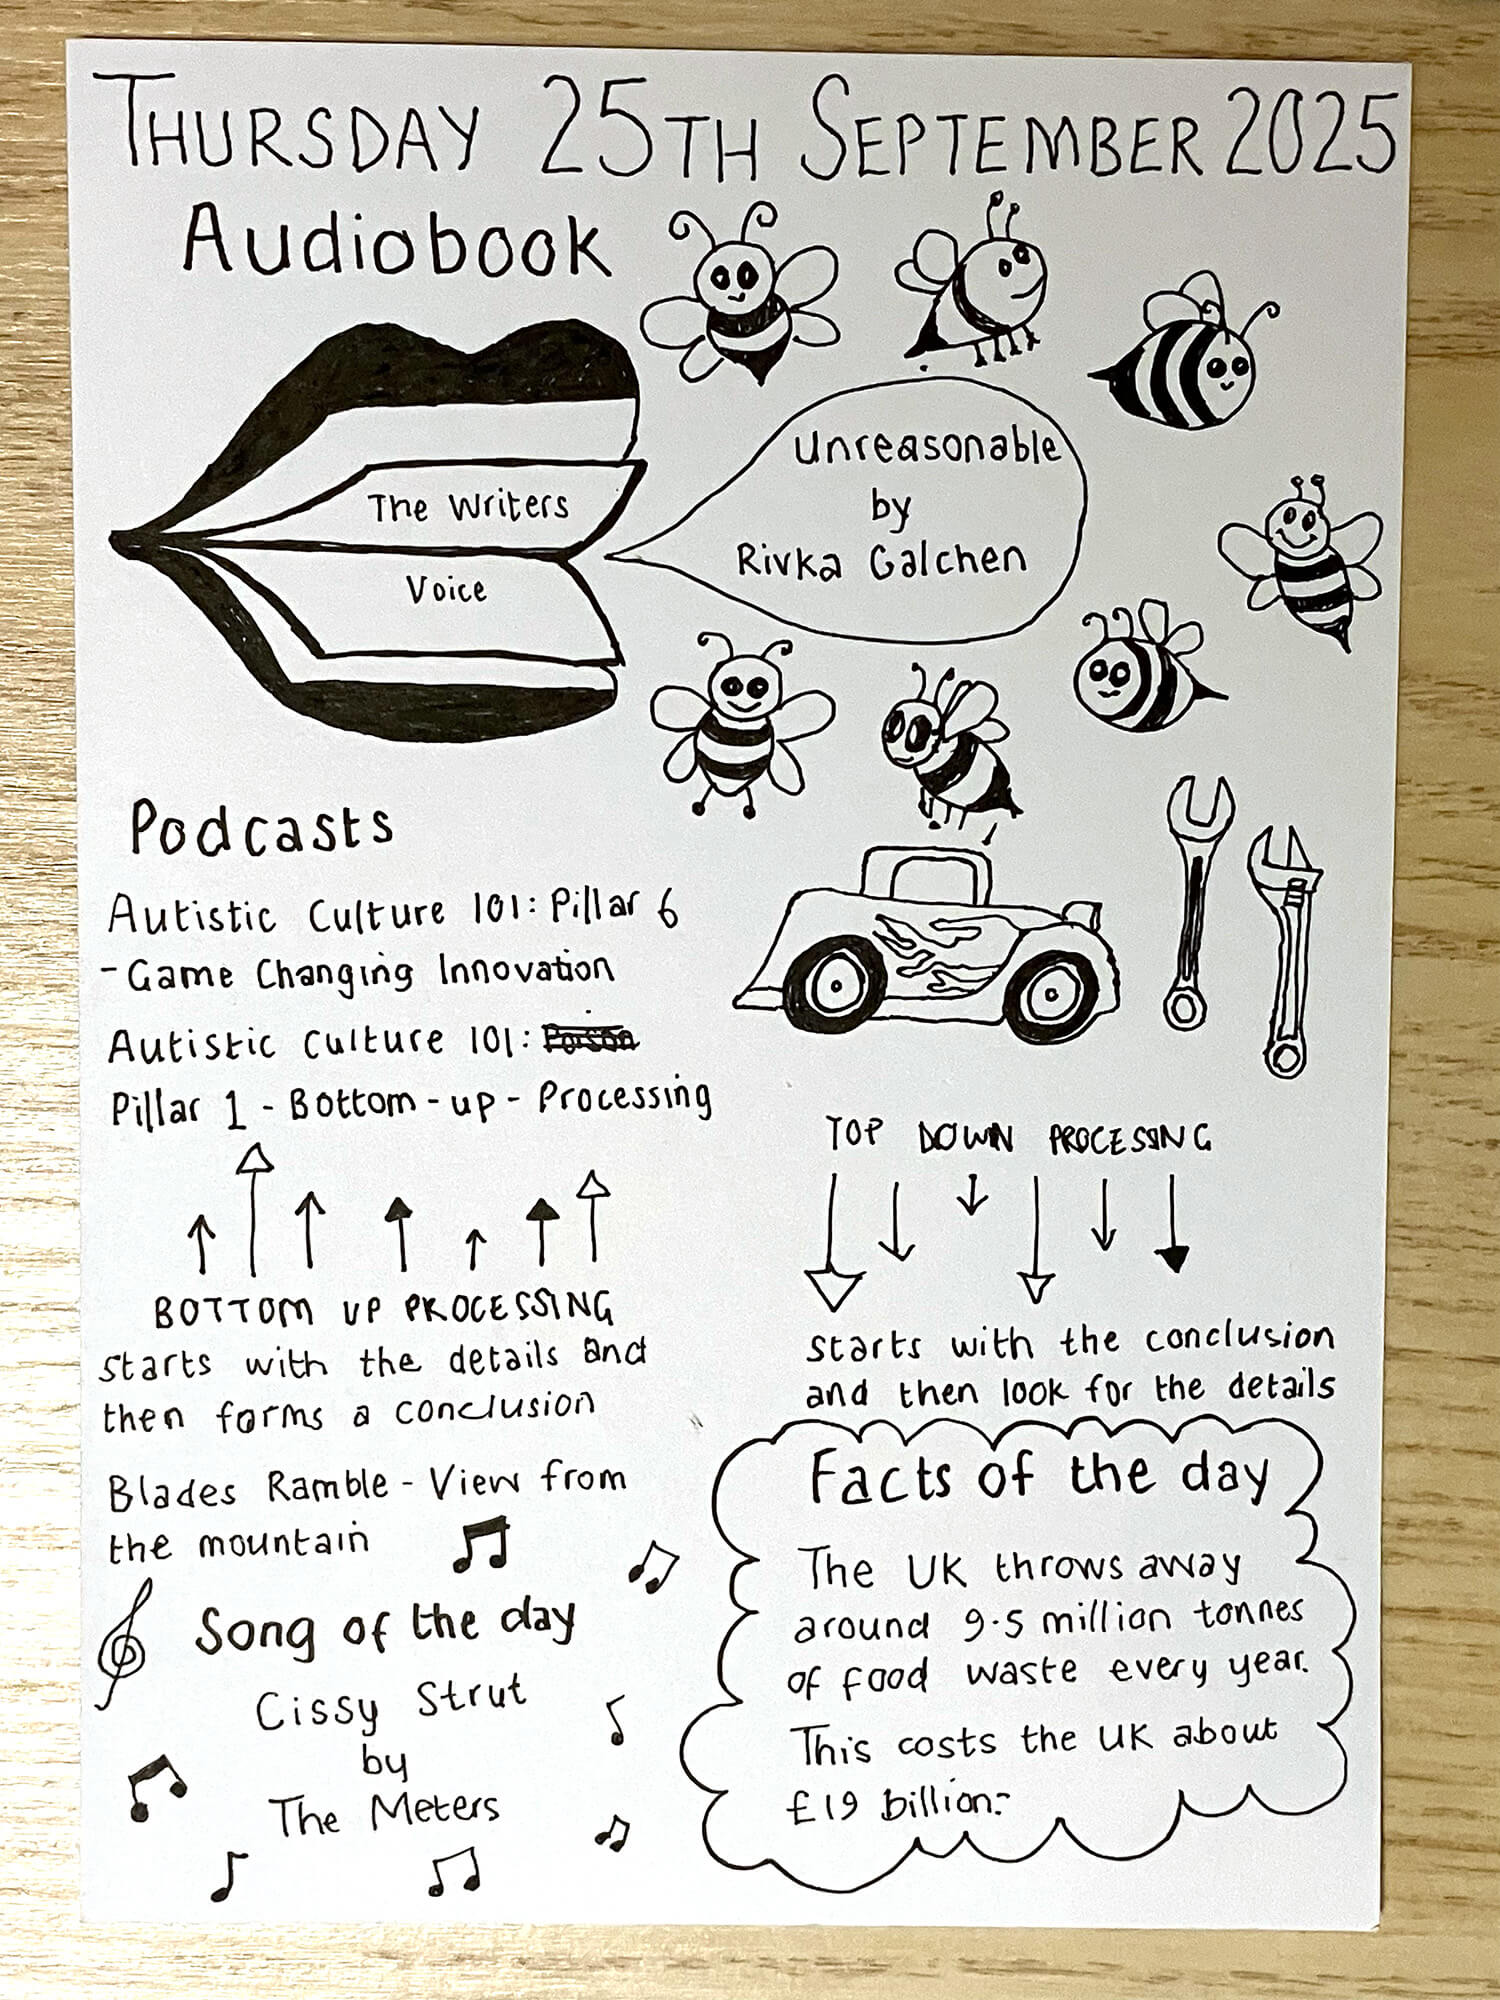 THURSDAY 25TH SEPTEMBER 2025
Audiobook
The Writers
Voice
Unreasonable
by
Rivka Galchen
Podcasts
Autistic Culture 101: Pillar 6
- Game Changing Innovation
Autistic Culture 101:
Pillar 1 - Bottom-up-Processing
BOTTOM UP PROCESSING
starts with the details and
then forms a conclusion
TOP DOWN PROCESSING
starts with the conclusion
and then look for the details
Blades Ramble - View from
the mountain
Song of the day
Cissy Strut
by
The Meters
Facts of the day
The UK throws away
around 9.5 million tonnes
of food waste every year.
This costs the UK about
£19 billion:-